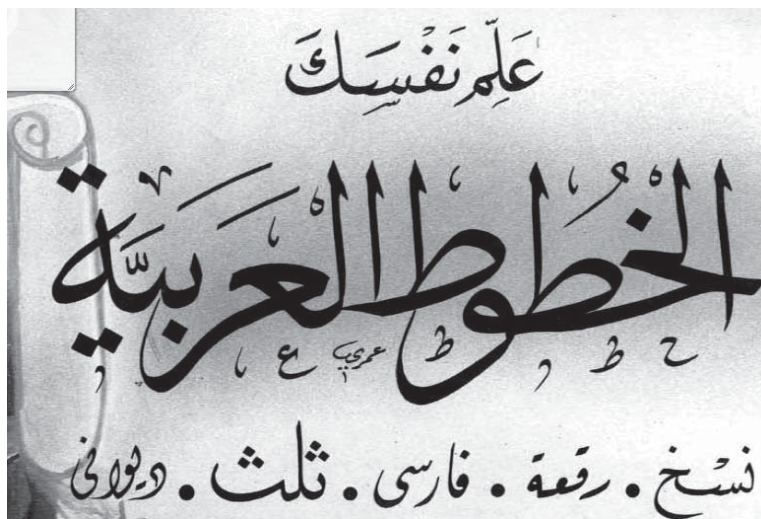 عَلِّم نَفْسِكَ
الخُطوط العَرَبيَّة
نسْخ • رقعة • فارسى • ثلث • ديوانى